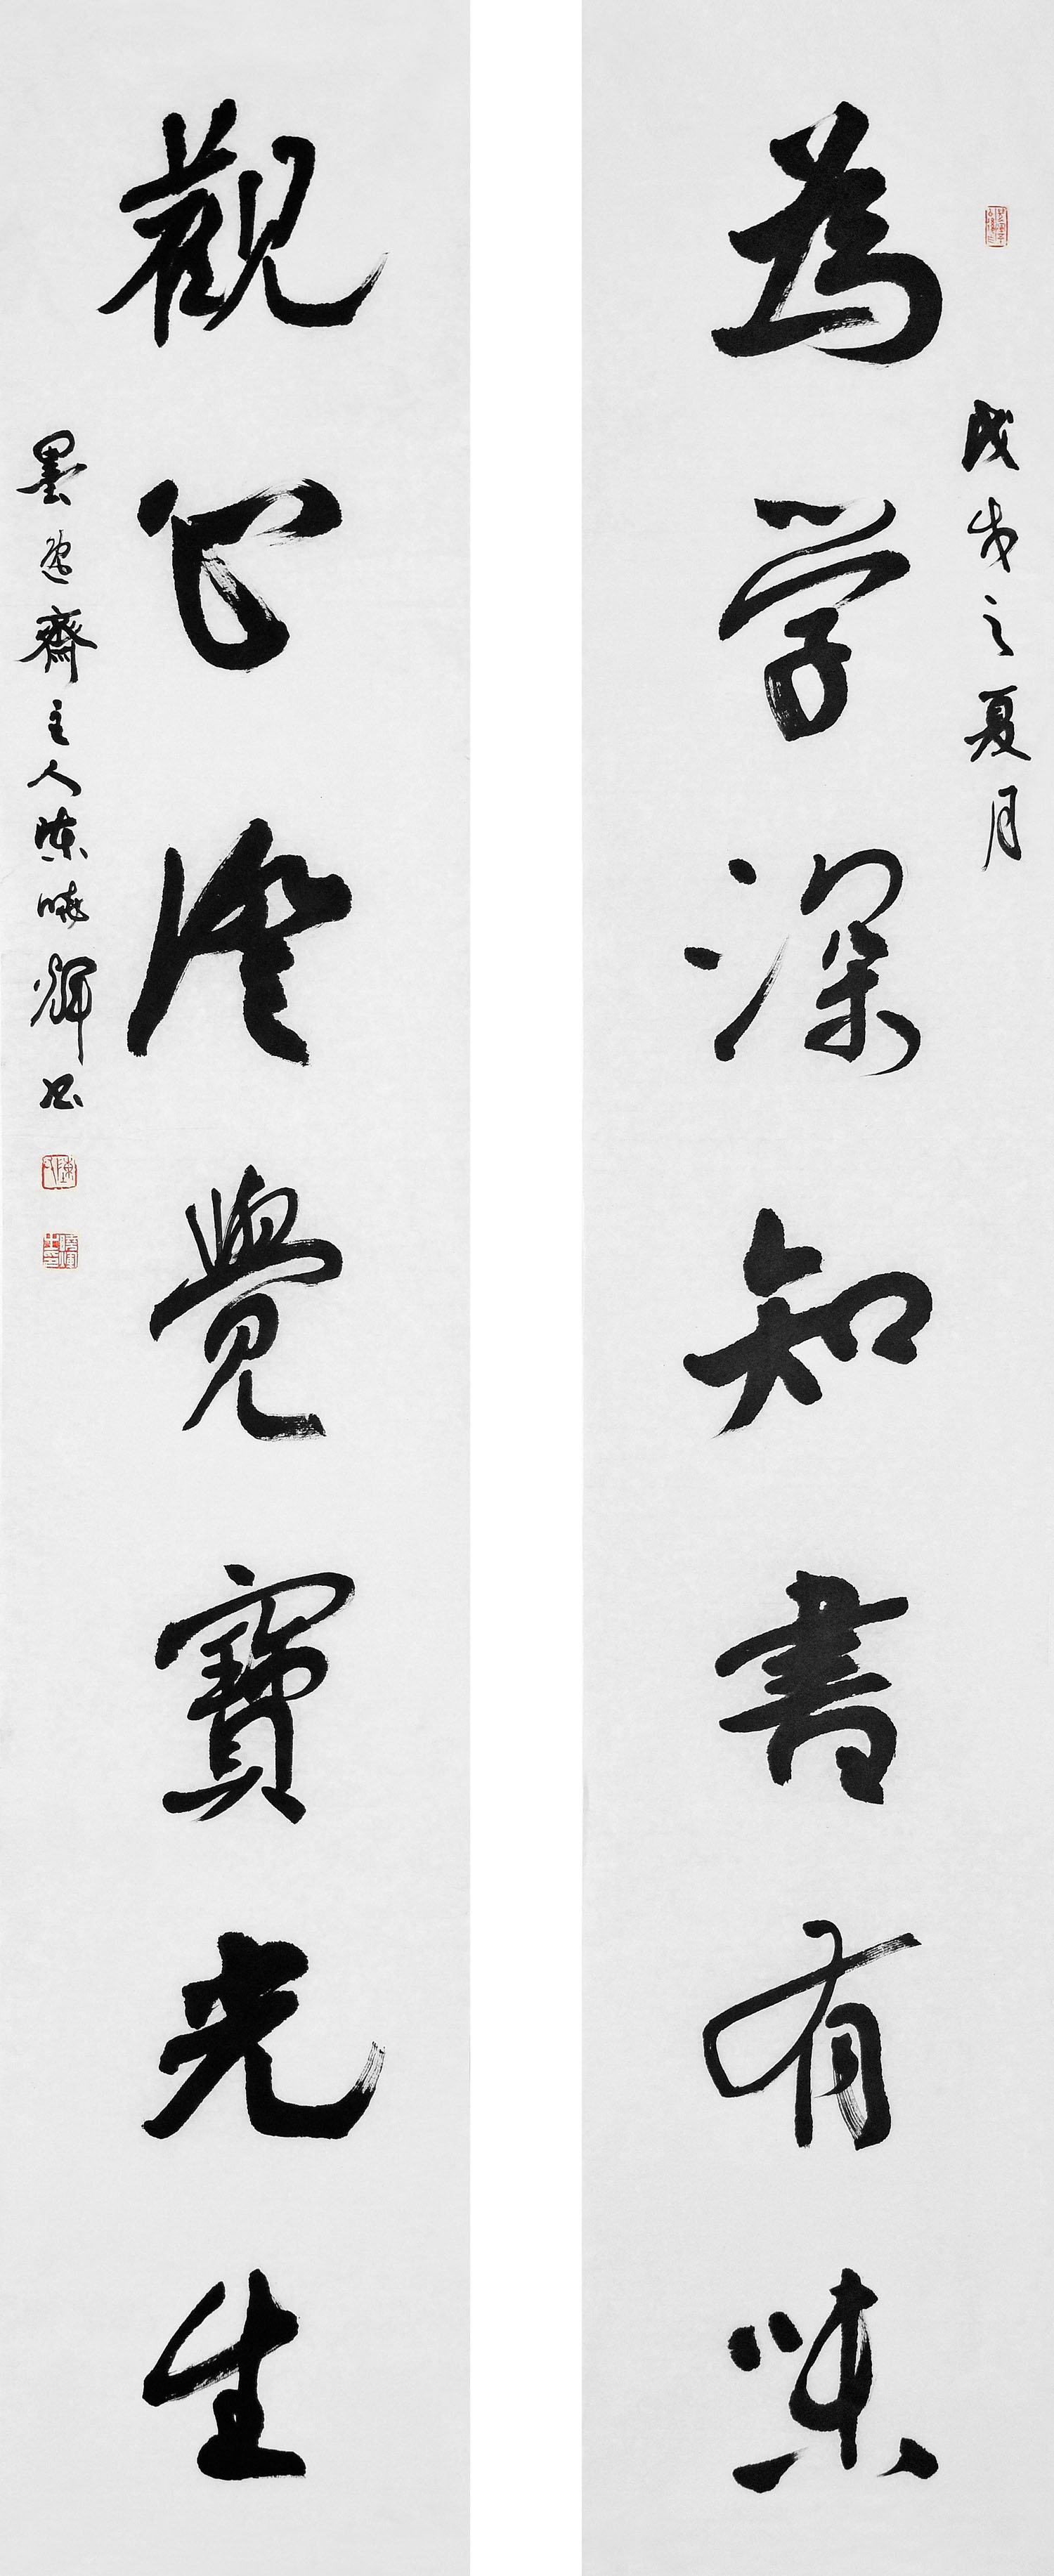 戊戌之夏月
為学深知書有味
觀心澄覺寶光生
墨逸齋主人陳曉輝書